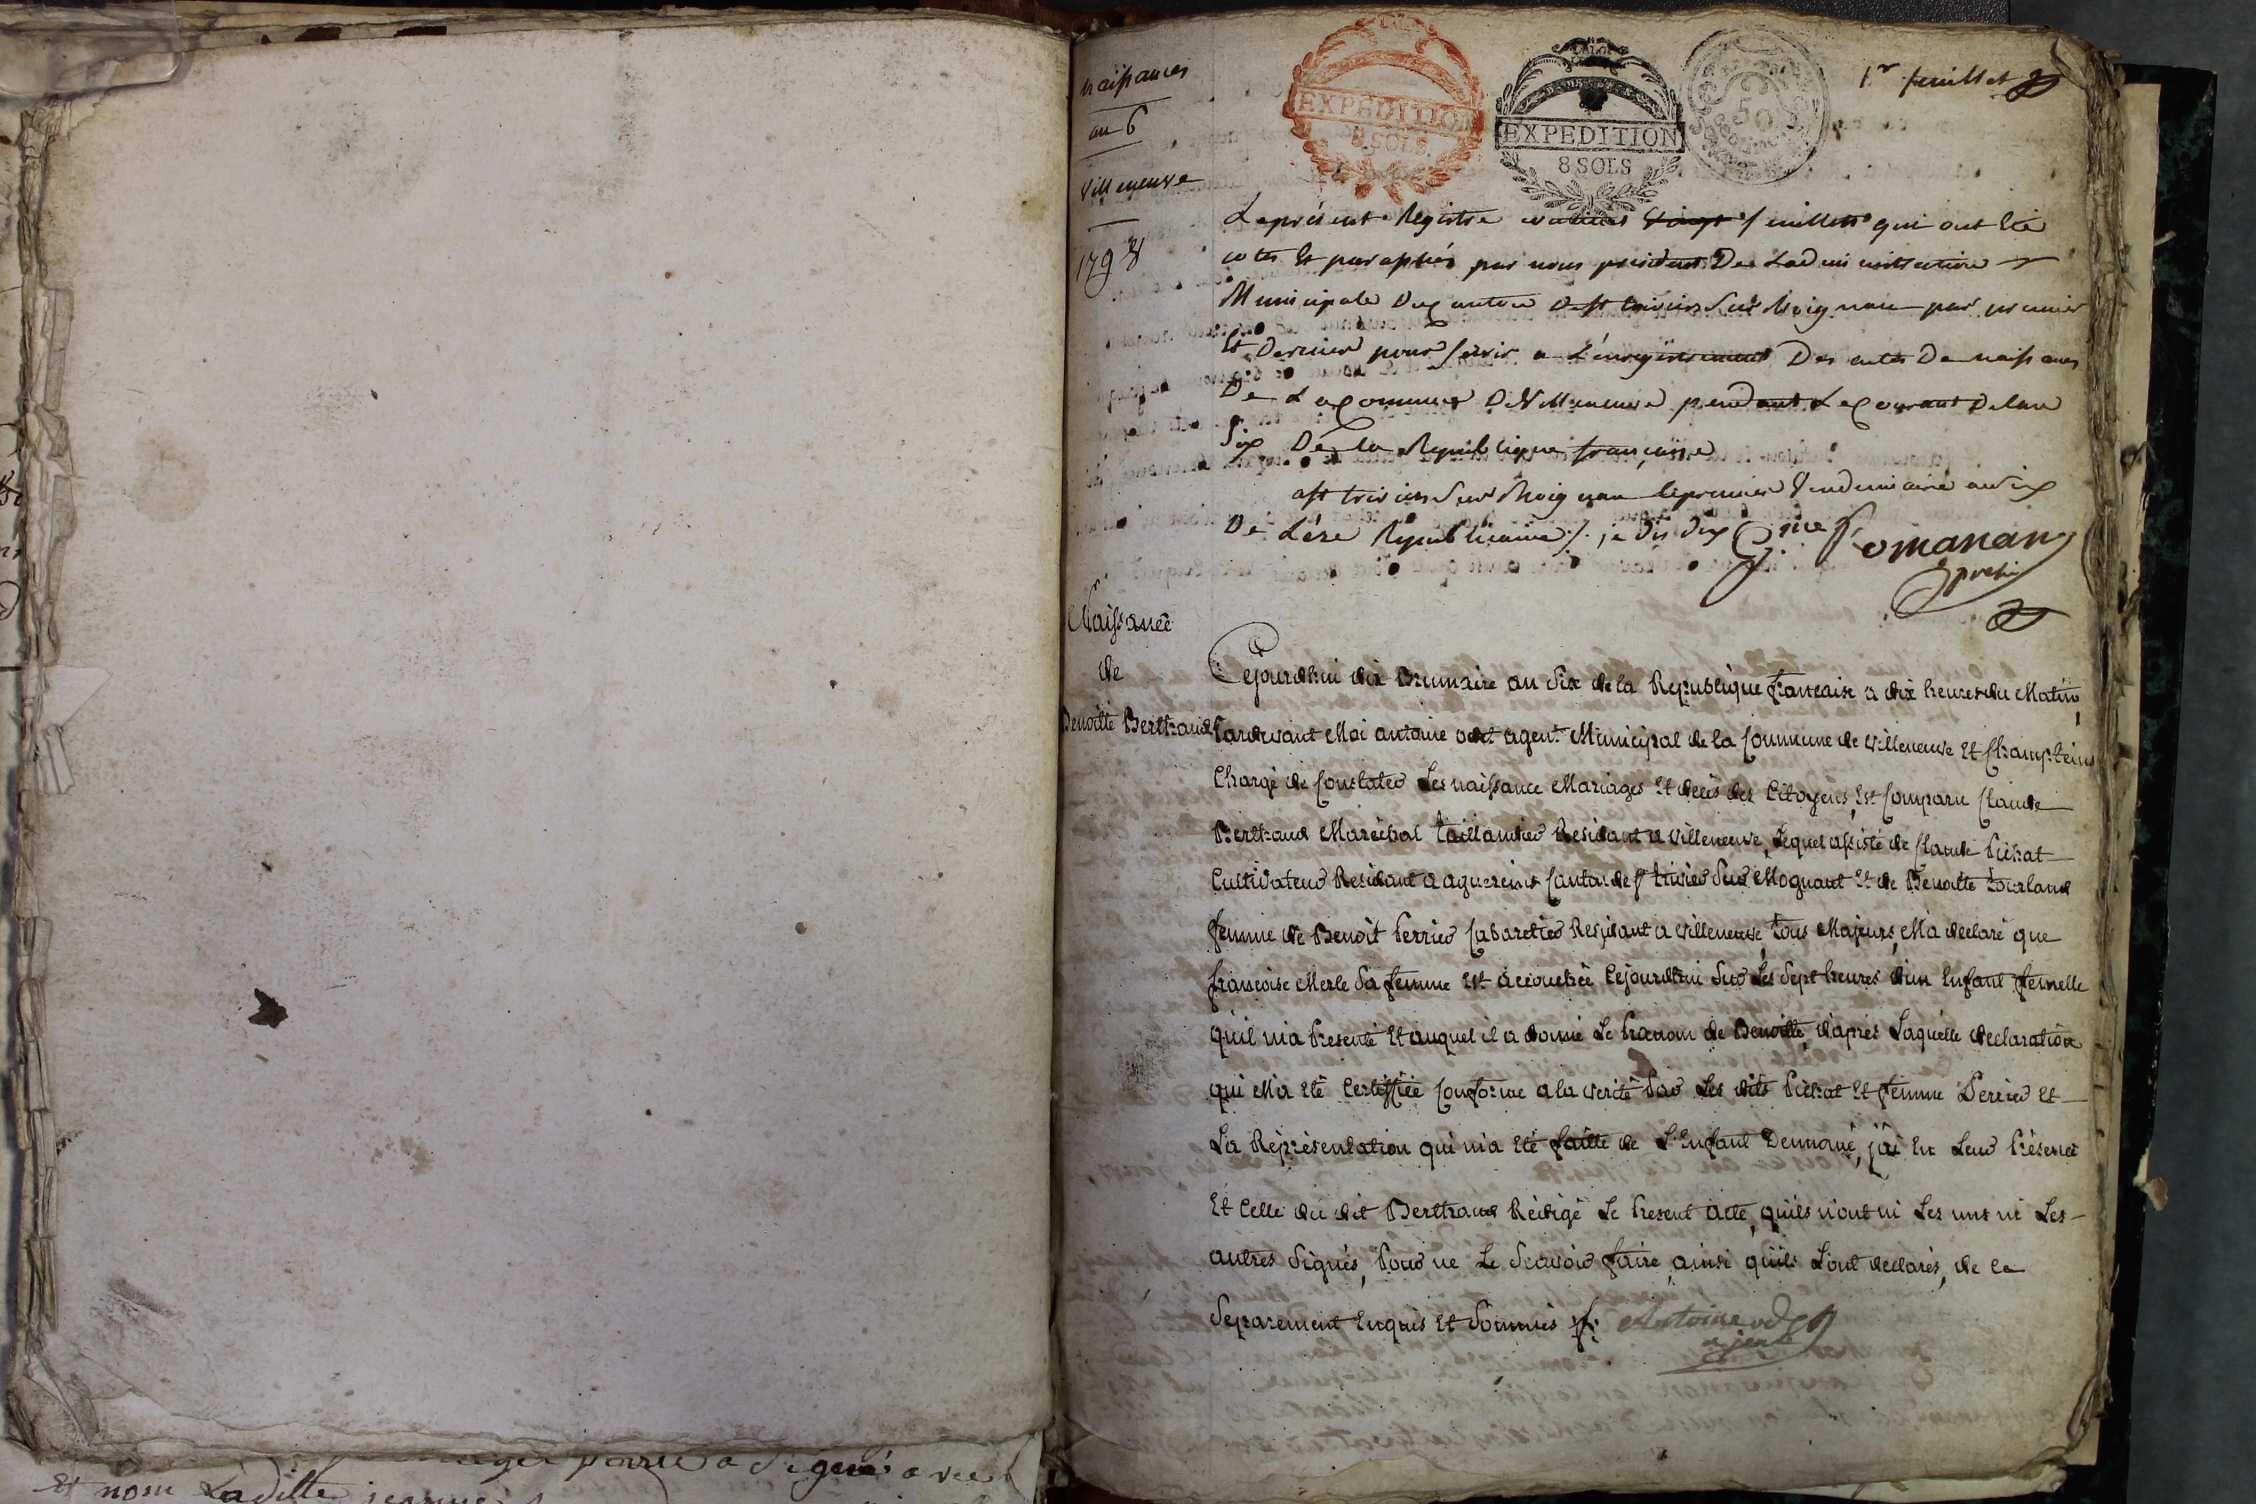 naissances
an 6
Villeneuve
1798
EXPEDITION
8 SOLS
EXPEDITION
8 SOLS
50
1er feuillet
Le présent Registre contient vingt feuillets qui ont Eté
cotés Et paraphés par nous president De Ladministration
Municipale Du Canton De st trivier Sur Moignan par premier
Et Dernier pour servir a L'enregistrement Des actes De naissances
De La Commune De Villeneuve pendant Le Courant De Lan
Six De La Republique française
a st trivier Sur Moignan le premier Vendemiaire an six
De L'ère Republicaine ./. je dis dix
Romanan
presid
Naissance
de
Benoitte Berthaud
Cejourdhui dix Brumaire an Six de la Republique francaise a dix heures du Matin,
Pardevant Moi antoine odet agent Municipal de la Commune de villeneuve Et Chaneins
Chargé de Constater Les naissance Mariages Et decès des Citoyens, Est Comparu Claude
Berthaud Maréchal taillandier Residant a villeneuve, Lequel assisté de Claude Pichat
Cultivateur Residant a agnereins Canton de st trivier Sur Mognant Et de Benoitte tourland
femme de Benoit Perrier Cabaretier Residant a villeneuve, tous Majeurs, M'a declaré que
francoise Merle Sa femme Est accouchée Cejourdhui Sur Les Sept heures d'un Enfant femelle
qu'il m'a Presenté Et auquel il a donné Le Prenom de Benoitte, d'après Laquelle declaration
qui M'a Eté Certiffiée Conforme a la verité Par Les dits Pichat Et femme Perrier Et
La Représentation qui m'a Eté faitte de L'Enfant Denomé, j'ai En Leur Présence
Et Celle du dit Berthaud Rédigé Le Present acte, qu'ils n'ont ni Les uns ni Les
autres Signés, Pour ne Le Scavoir faire, ainsi qu'ils L'ont declarés, de ce
Separement Enquis Et Sommés
Antoine odet
ajent
a Signé avec
Et nom Ladille jeanne